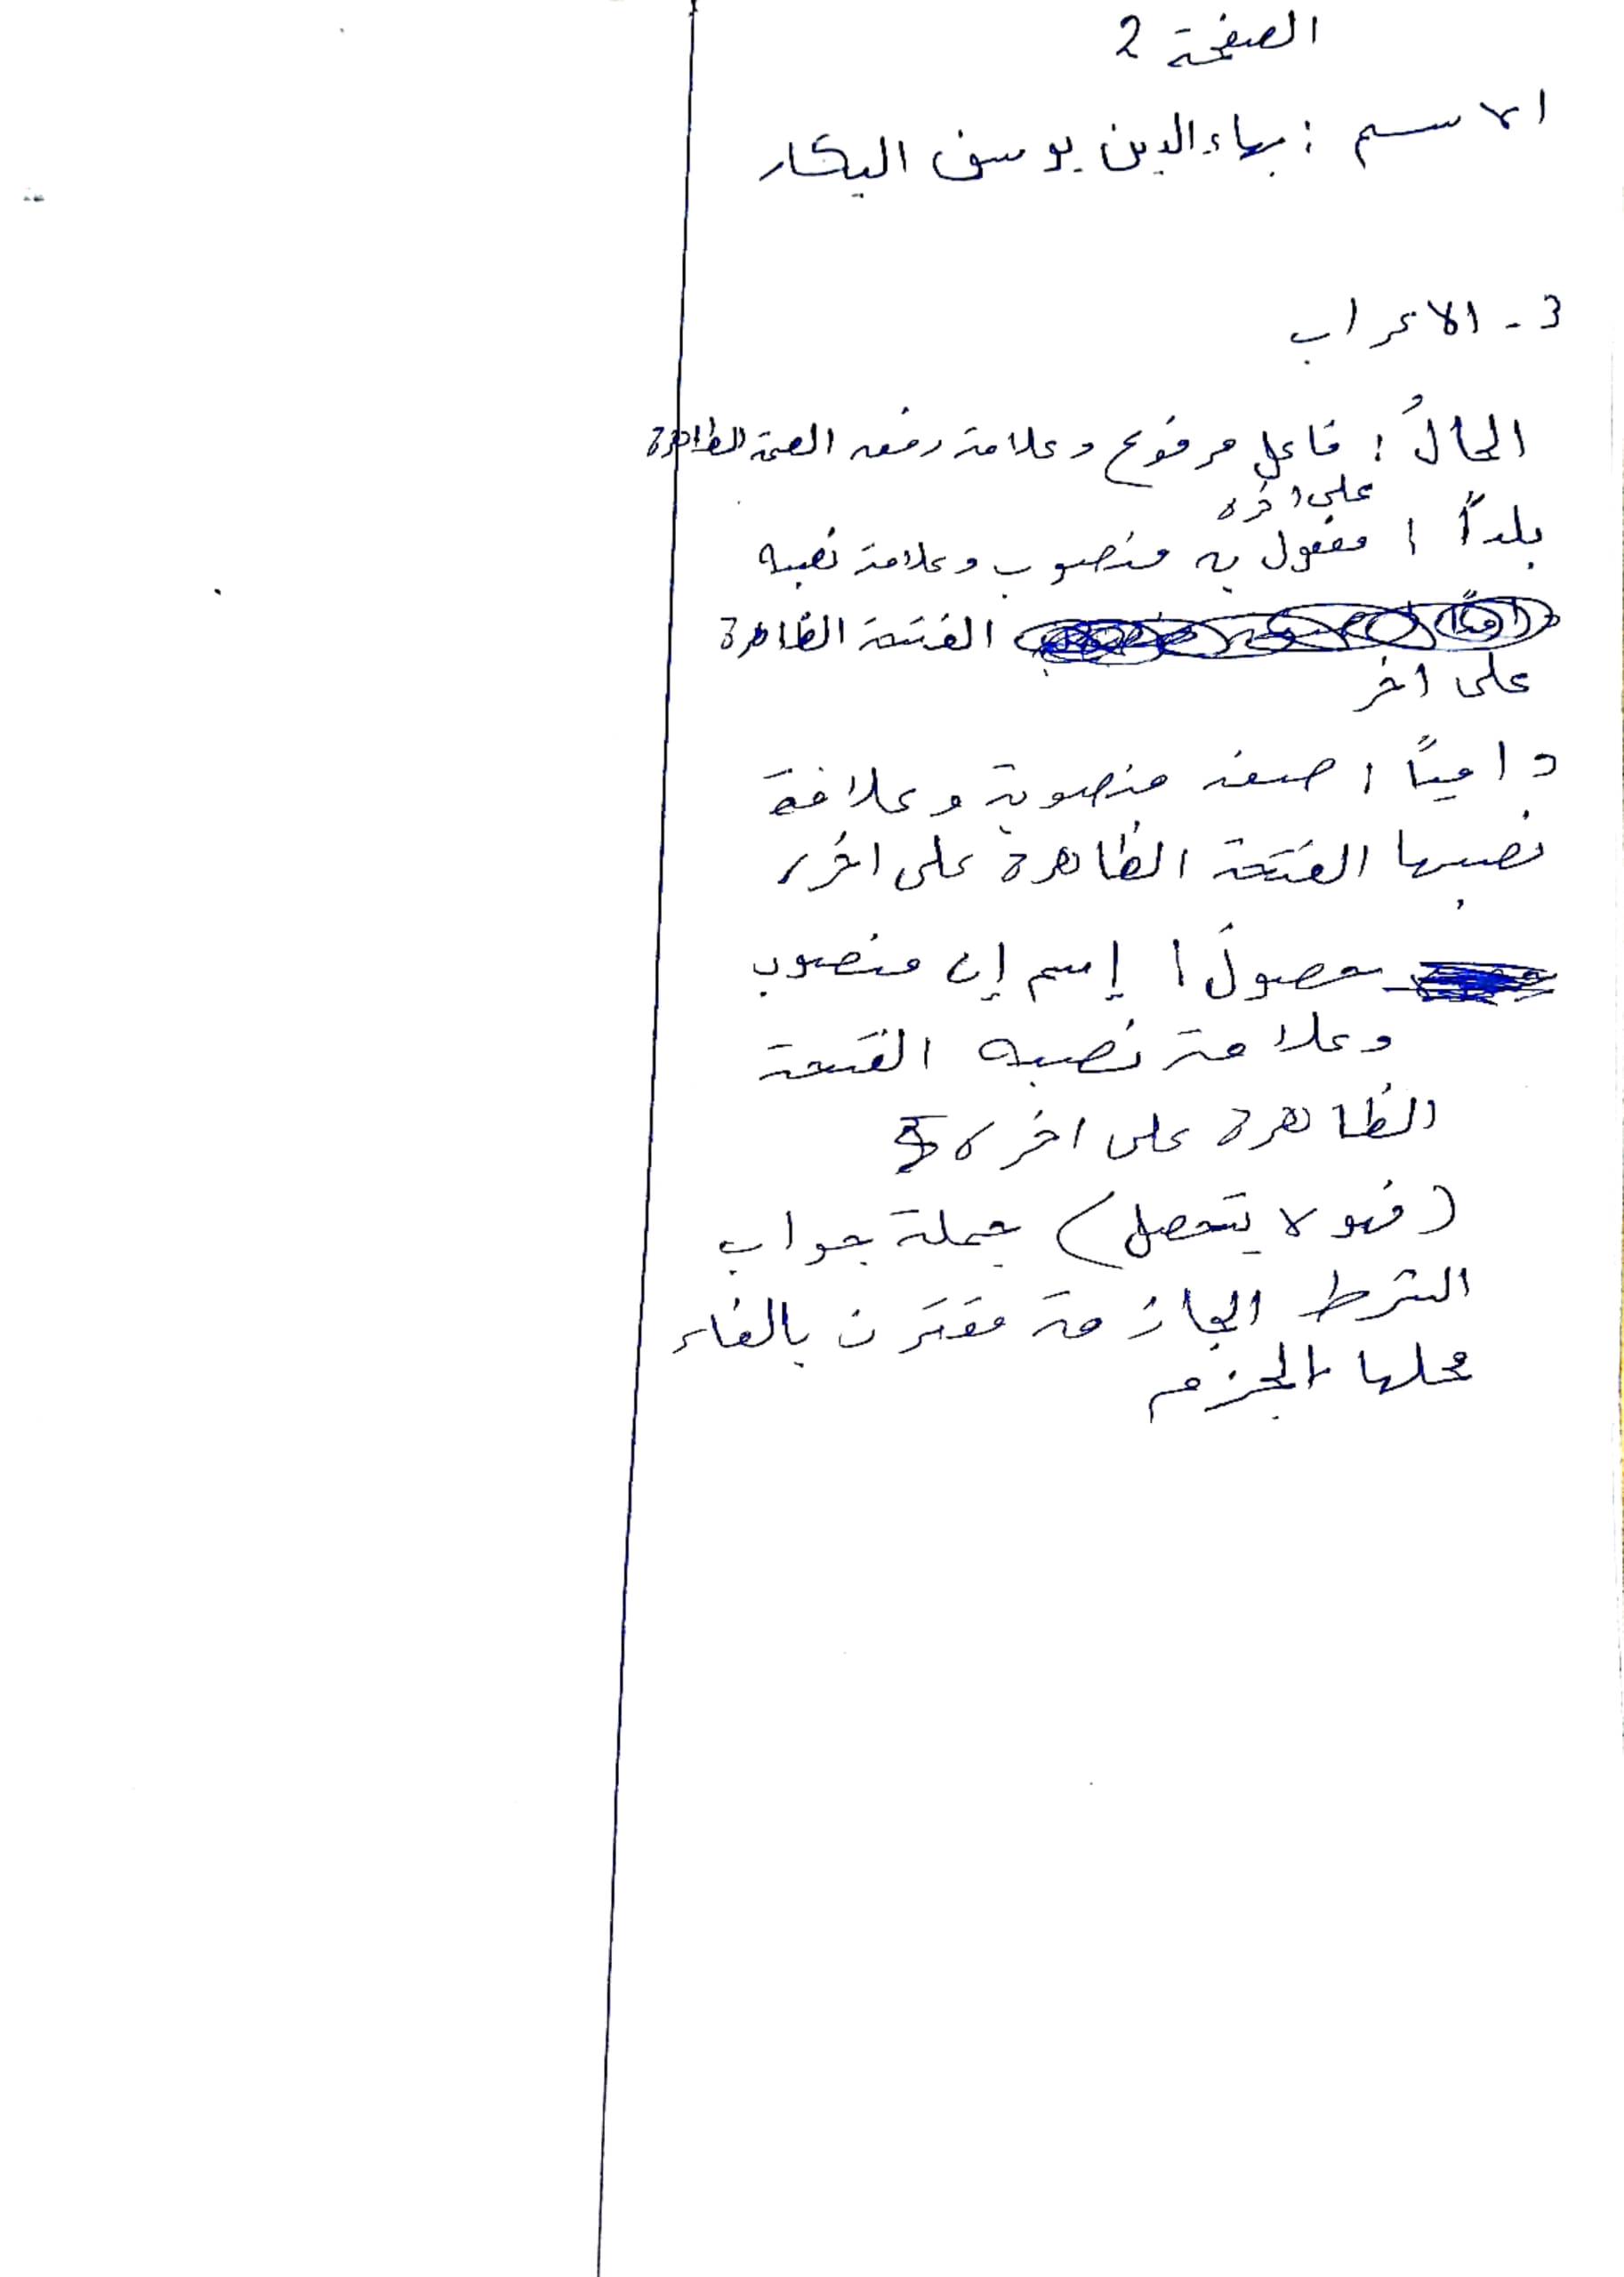 الصفحة 2
الاسم : بهاء الدين يوسف البكار
3 - الاعراب
الحالُ : فاعل مرفوع وعلامة رفعه الضمة الظاهرة
على اخره
بلداً : مفعول به منصوب وعلامة نصبه
الفتحة الظاهرة
على اخر
دامياً : صفة منصوبة وعلامة
نصبها الفتحة الظاهرة على اخر
حصولَ : إسم إن منصوب
وعلامة نصبه الفتحة
الظاهرة على اخره
(فهو لا يتحصل) جملة جواب
الشرط الجازمة مقترن بالفاء
محلها الجزم